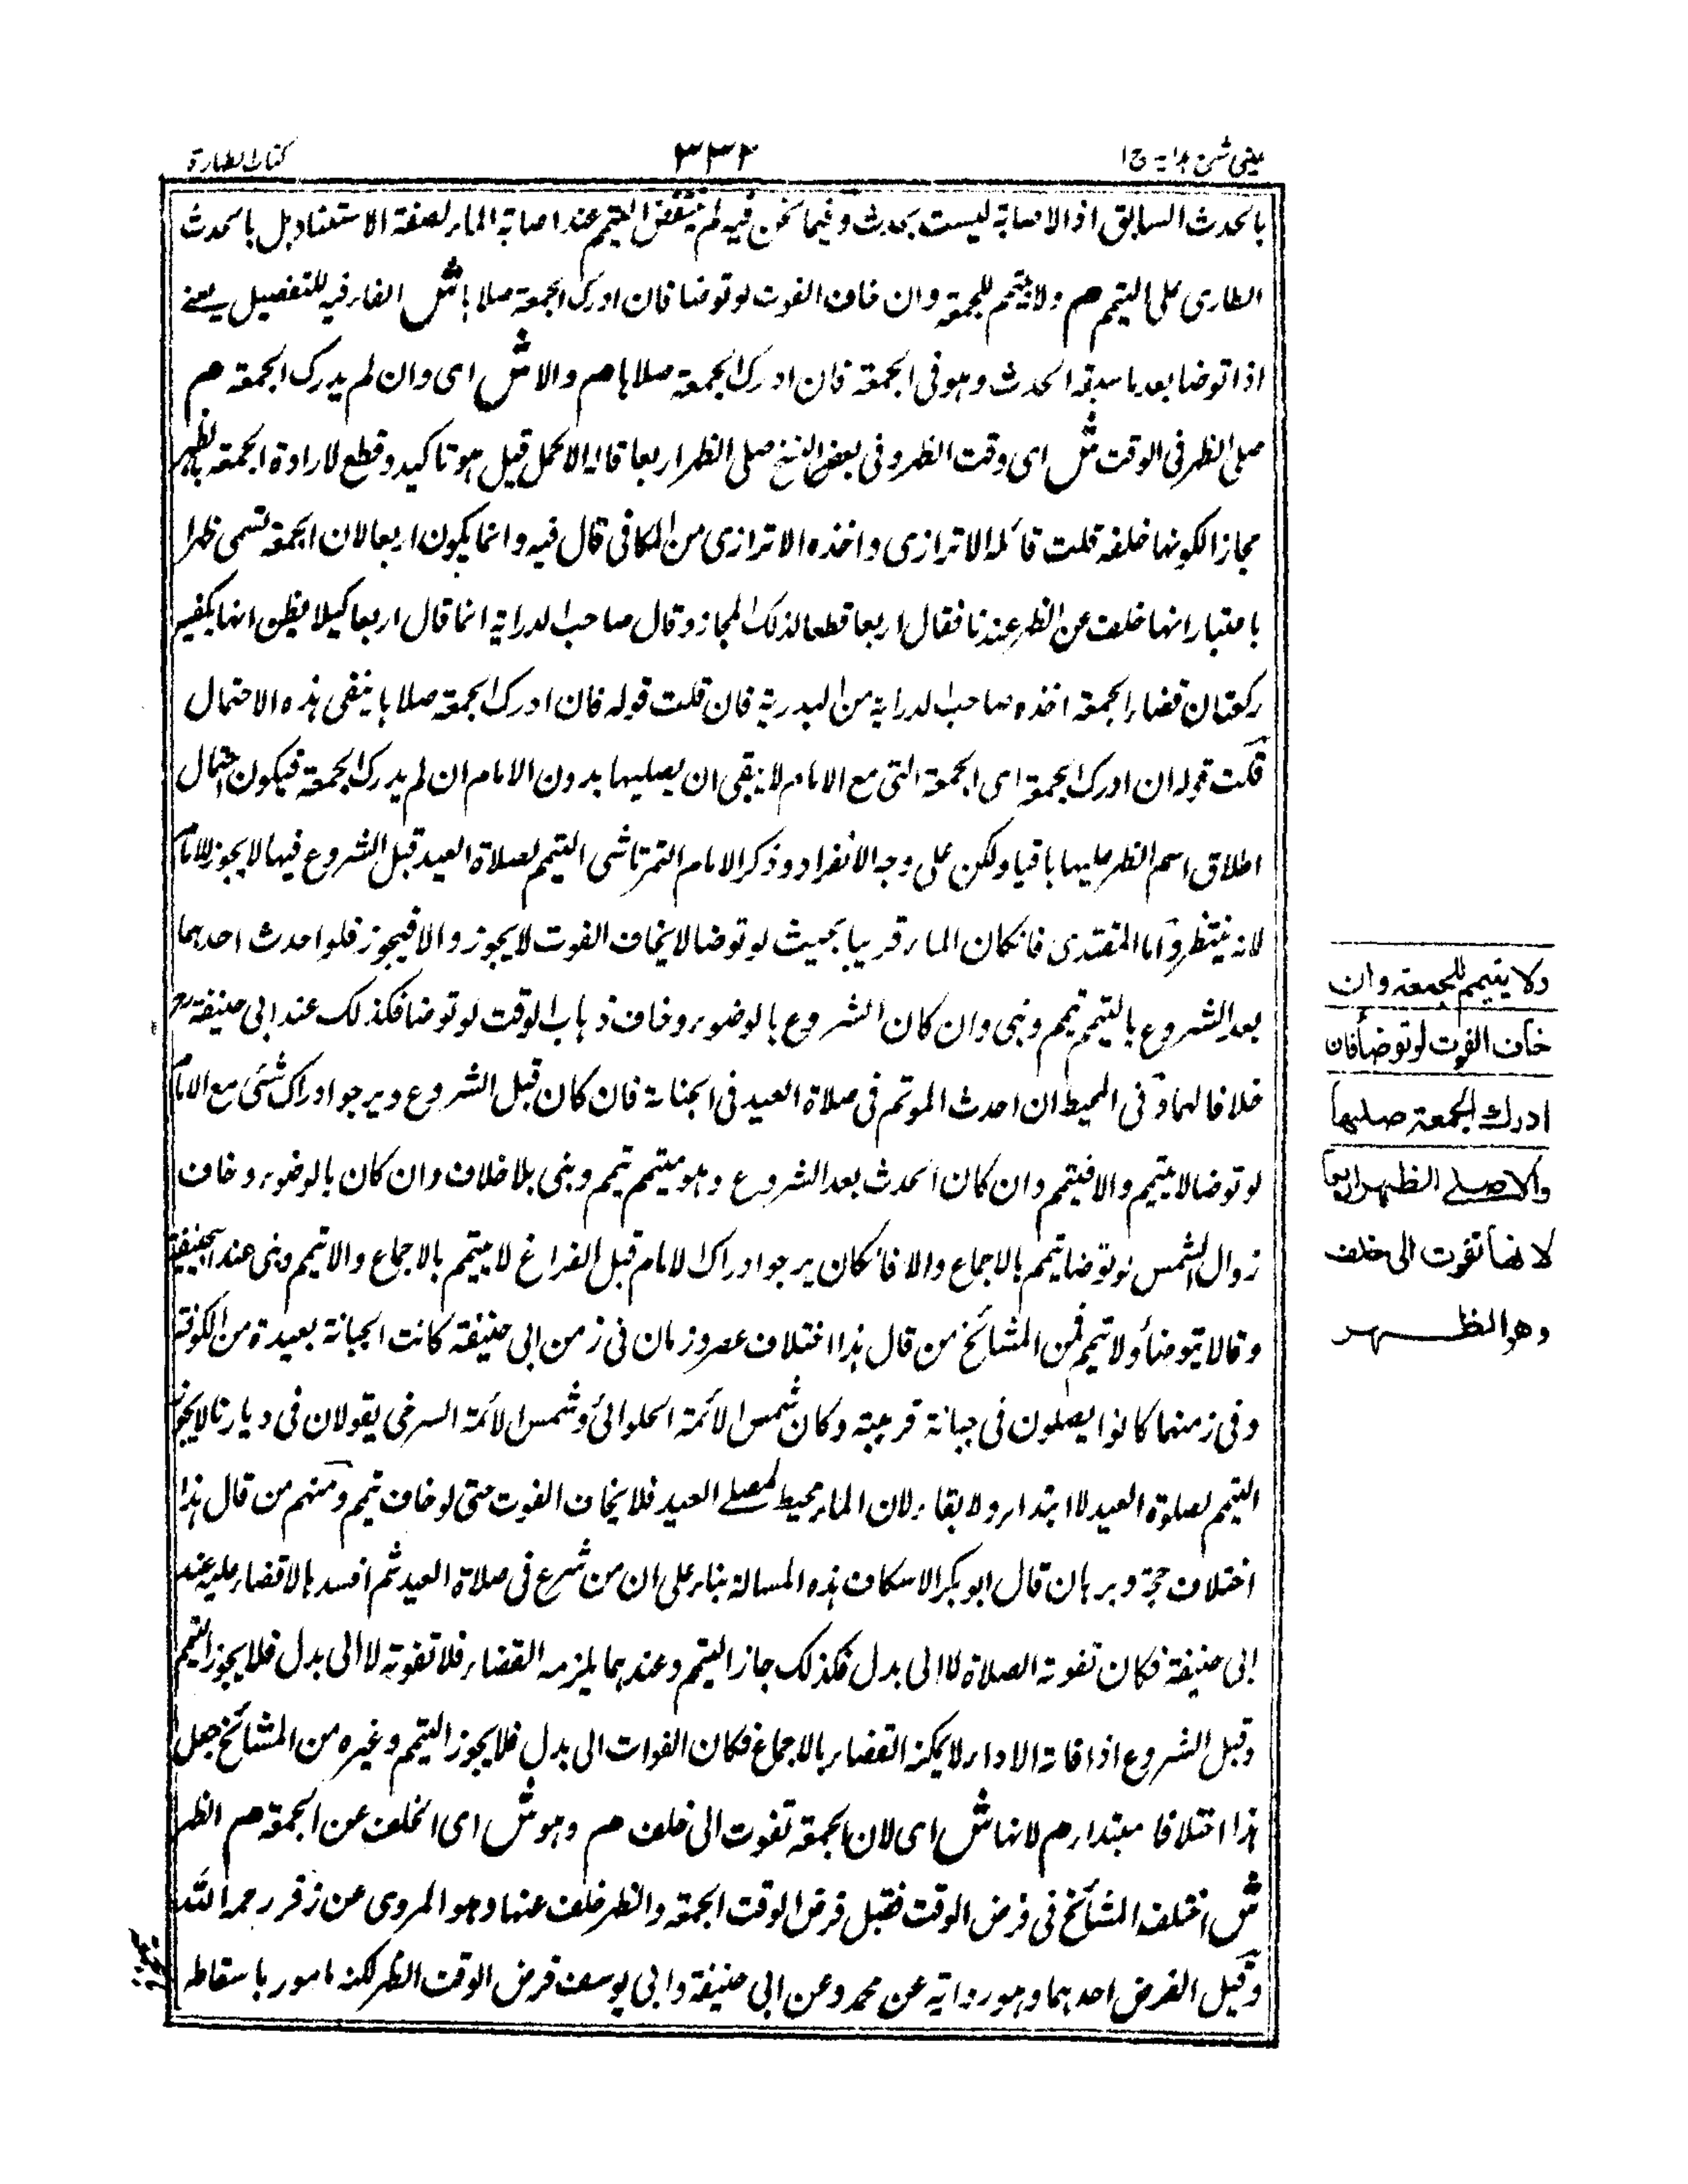 عینی شرح هدایة ج ۱
۳۳۲
کتاب الطهارة
بالحدث السابق اذ الاصابة لیست بحدث وفیما نحن فیه لم ینتقض التیمم عند اصابة الماء لصفة الاستناد بل بالحدث
الطاری علی التیمم م ولا یتیمم للجمعة وان خاف الفوت لو توضا فان ادرک الجمعة صلاها ش الفاء فیه للتفصیل یعنے
اذا توضا بعد ما سبقه الحدث وهو فی الجمعة فان ادرک الجمعة صلاها م والا ش ای وان لم یدرک الجمعة م
صلی الظهر فی الوقت ش ای وقت الظهر وفی بعض النسخ صلی الظهر اربعا قاله الاکمل قیل هو تاکید وقطع لارادة الجمعة بالظهر
مجازا لکونها خلفه قلت قائله الاترازی واخذه الاترازی من الکافی قال فیه وانما یکون اربعا لان الجمعة تسمی ظهرا
باعتبار انها خلف عن الظهر عندنا فقال اربعا قطعا لذلک المجاز وقال صاحب الدرایة انما قال اربعا کیلا یظن انها یکفیه
رکعتان قضاء الجمعة اخذه صاحب الدرایة من البدریة فان قلت قوله فان ادرک الجمعة صلاها ینفی هذه الاحتمال
قلت قوله ان ادرک الجمعة ای الجمعة التی مع الامام لا ینفی ان یصلیها بدون الامام ان لم یدرک الجمعة فیکون احتمال
اطلاق اسم الظهر علیها باقیا ولکن علی وجه الانفراد وذکر الامام التمرتاشی التیمم لصلاة العید قبل الشروع فیها لا یجوز للامام
لانه ینتظر واما المقتدی فانکان الماء قریبا بحیث لو توضا لا یخاف الفوت لا یجوز والا فیجوز فلو احدث احدهما
بعد الشروع بالتیمم تیمم وبنی وان کان الشروع بالوضوء وخاف ذهاب الوقت لو توضا فکذلک عند ابی حنیفة رح
خلافا لهما وفی المحیط ان احدث الموتم فی صلاة العید فی الجنابة فان کان قبل الشروع ویرجو ادراک شئی مع الامام
لو توضا لا یتیمم والا فیتیمم وان کان الحدث بعد الشروع وهو متیمم تیمم وبنی بلا خلاف وان کان بالوضوء وخاف
زوال الشمس لو توضا یتیمم بالاجماع والا فانکان یرجو ادراک الامام قبل الفراغ لا یتیمم بالاجماع والا تیمم وبنی عند ابیحنیفة
وقالا یتوضأ ولا تیمم فمن المشائخ من قال هذا اختلاف عصر وزمان فی زمن ابی حنیفة کانت الجبانة بعیدة من الکوفة
وفی زمنهما کانوا یصلون فی جبانة قریبة وکان شمس الائمة الحلوائی وشمس الائمة السرخی یقولان فی دیارنا لا یجوز
التیمم لصلوة العید لا ابتداء ولا بقاء لان الماء محیط لمصلے العید فلا یخاف الفوت حتی لو خاف تیمم ومنهم من قال هذا
اختلاف حجة وبرهان قال ابو بکر الاسکاف هذه المسالة بناء علی ان من شرع فی صلاة العید ثم افسدها لا قضاء علیه عند
ابی حنیفة فکان تفوته الصلاة لا الی بدل فکذلک جاز التیمم وعندهما یلزمه القضاء فلا تفوته لا الی بدل فلا یجوز التیمم
وقبل الشروع اذا فاته الاداء لا یمکنه القضاء بالاجماع فکان الفوات الی بدل فلا یجوز التیمم وغیره من المشائخ جعل
هذا اختلافا مبتداء م لانها ش ای لان الجمعة تفوت الی خلف م وهو ش ای الخلف عن الجمعة م الظهر
ش اختلف المشائخ فی فرض الوقت فقیل فرض الوقت الجمعة والظهر خلف عنها وهو المروی عن زفر رحمه الله
وقیل الفرض احدهما وهو روایة عن محمد وعن ابی حنیفة وابی یوسف فرض الوقت الظهر لکنه مامور باسقاطه
ولا یتیمم للجمعة وان
خاف الفوت لو توضأ فان
ادرك الجمعة صلیها
والا صلے الظهر اربعا
لانها تفوت الی خلف
وهو الظهر